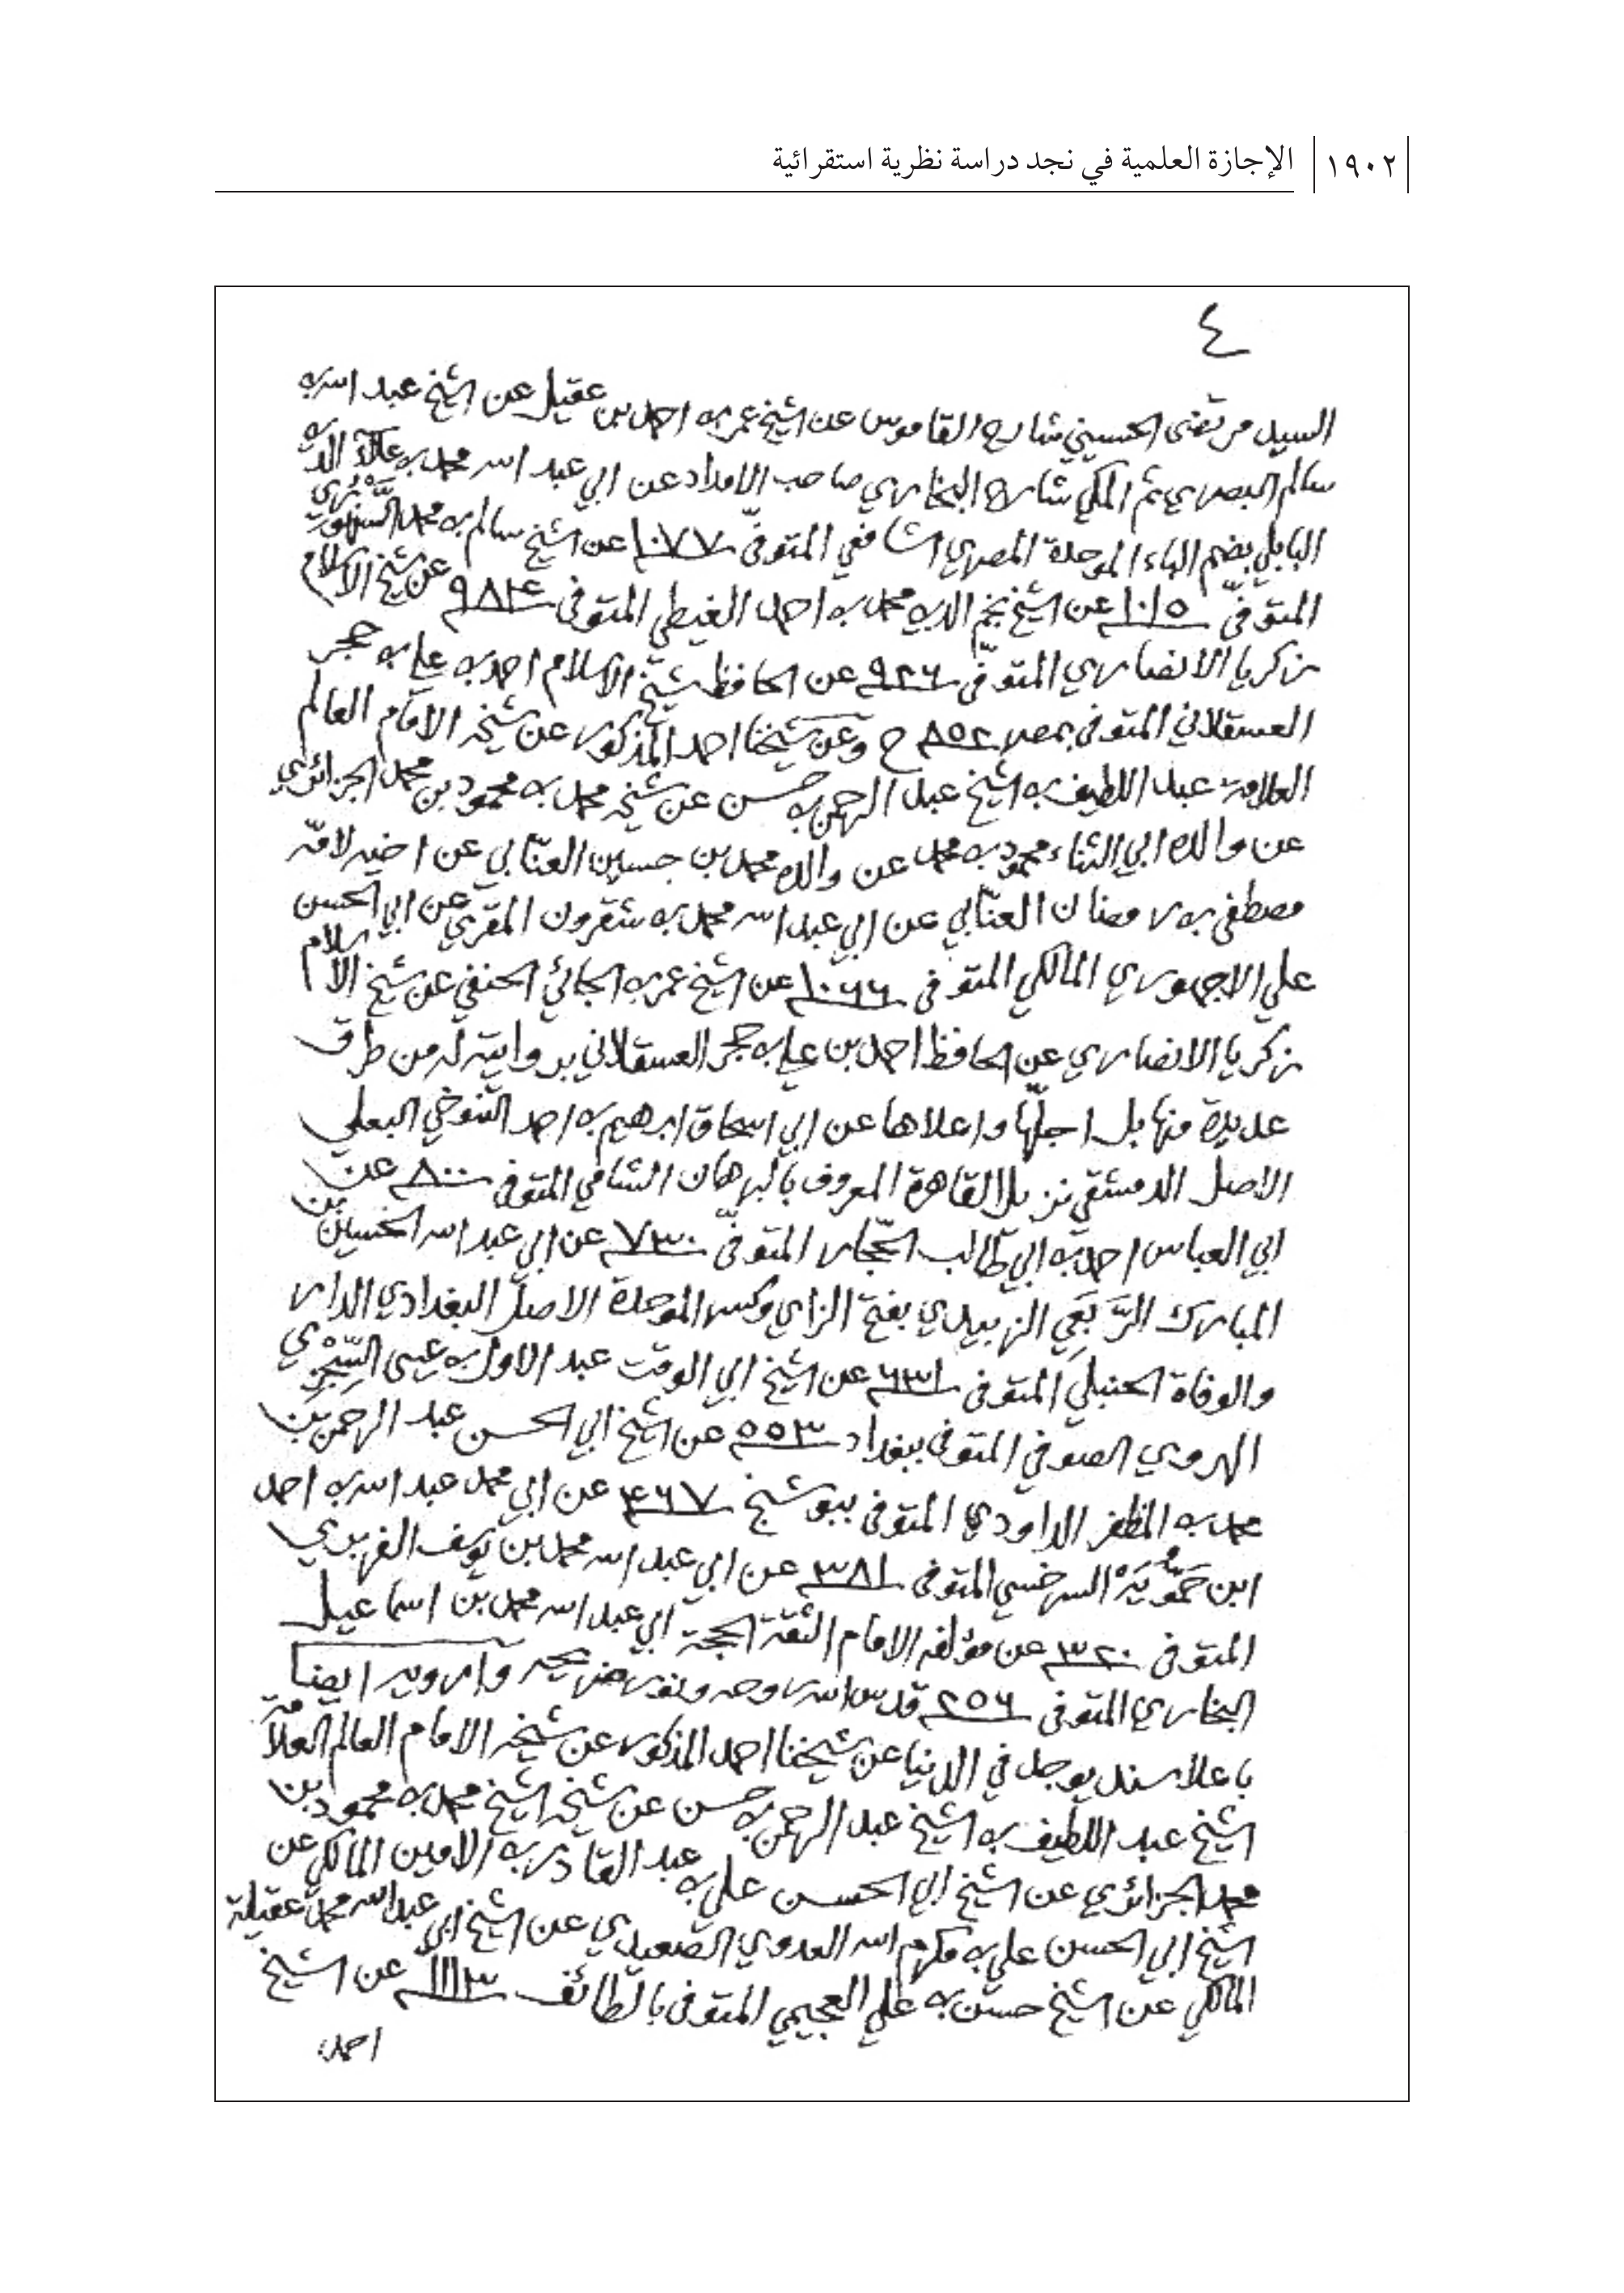 ١٩٠٢ الإجازة العلمية في نجد دراسة نظرية استقرائية
٤
السيد مرتضى الحسيني شارح القاموس عن الشيخ عمر بن احمد بن عقيل عن الشيخ عبد الله بن
سالم البصري ثم المكي شارح البخاري صاحب الامداد عن ابي عبد الله محمد بن علاء الدين
البابلي بضم الباء الموحدة المصري الشافعي المتوفى ١٠٧٧ عن الشيخ سالم بن محمد السنهوري
المتوفى ١٠١٥ عن الشيخ نجم الدين محمد بن احمد الغيطي المتوفى ٩٨٤ عن شيخ الاسلام
زكريا الانصاري المتوفى ٩٢٦ عن الحافظ شيخ الاسلام احمد بن علي بن حجر
العسقلاني المتوفى بمصر ٨٥٢ ح وعن شيخنا احمد المذكور عن شيخه الامام العالم
العلامة عبد اللطيف بن الشيخ عبد الرحمن بن حسن عن شيخه محمد بن محمود بن محمد الجزائري
عن والده ابي الثناء محمود بن محمد عن والده محمد بن حسين العنّابي عن اخيه لامّه
مصطفى بن رمضان العنّابي عن ابي عبد الله محمد بن شقرون المقري عن ابي الحسن
علي الاجهوري المالكي المتوفى ١٠٦٦ عن الشيخ عمر بن الجائي الحنفي عن شيخ الاسلام
زكريا الانصاري عن الحافظ احمد بن علي بن حجر العسقلاني بروايته له من طرق
عديدة منها بل اجلّها واعلاها عن ابي اسحاق ابرهيم بن احمد التنوخي البعلي
الاصل الدمشقي نزيل القاهرة المعروف بالبرهان الشامي المتوفى ٨٠٠ عن
ابي العباس احمد بن ابي طالب الحجّار المتوفى ٧٣٠ عن ابي عبد الله الحسين بن
المبارك الرَّبَعِي الزبيدي بفتح الزاي وكسر الموحدة الاصل البغدادي الدار
والوفاة الحنبلي المتوفى ٦٣١ عن الشيخ ابي الوقت عبد الاول بن عيسى السِّجْزي
الهروي الصوفي المتوفى ببغداد ٥٥٣ عن الشيخ ابي الحسن عبد الرحمن بن
محمد بن المظفر الداودي المتوفى ببوشنج ٤٦٧ عن ابي محمد عبد الله بن احمد
ابن حَمُّويَهْ السرخسي المتوفى ٣٨١ عن ابي عبد الله محمد بن يوسف الفربري
المتوفى ٣٢٠ عن مؤلفه الامام الثقة الحجة ابي عبد الله محمد بن اسماعيل
البخاري المتوفى ٢٥٦ قدس الله روحه ونور ضريحه وارويه ايضا
باعلا سند يوجد في الدنيا عن شيخنا احمد المذكور عن شيخه الامام العالم العلامة
الشيخ عبد اللطيف بن الشيخ عبد الرحمن بن حسن عن شيخه الشيخ محمد بن محمود بن
محمد الجزائري عن الشيخ ابي الحسن علي بن عبد القادر بن الامين المالكي عن
الشيخ ابي الحسن علي بن مكرم الله العدوي الصعيدي عن الشيخ ابي عبد الله محمد عقيلة
المالكي عن الشيخ حسن بن علي العجيمي المتوفى بالطائف ١١١٣ عن الشيخ
احمد